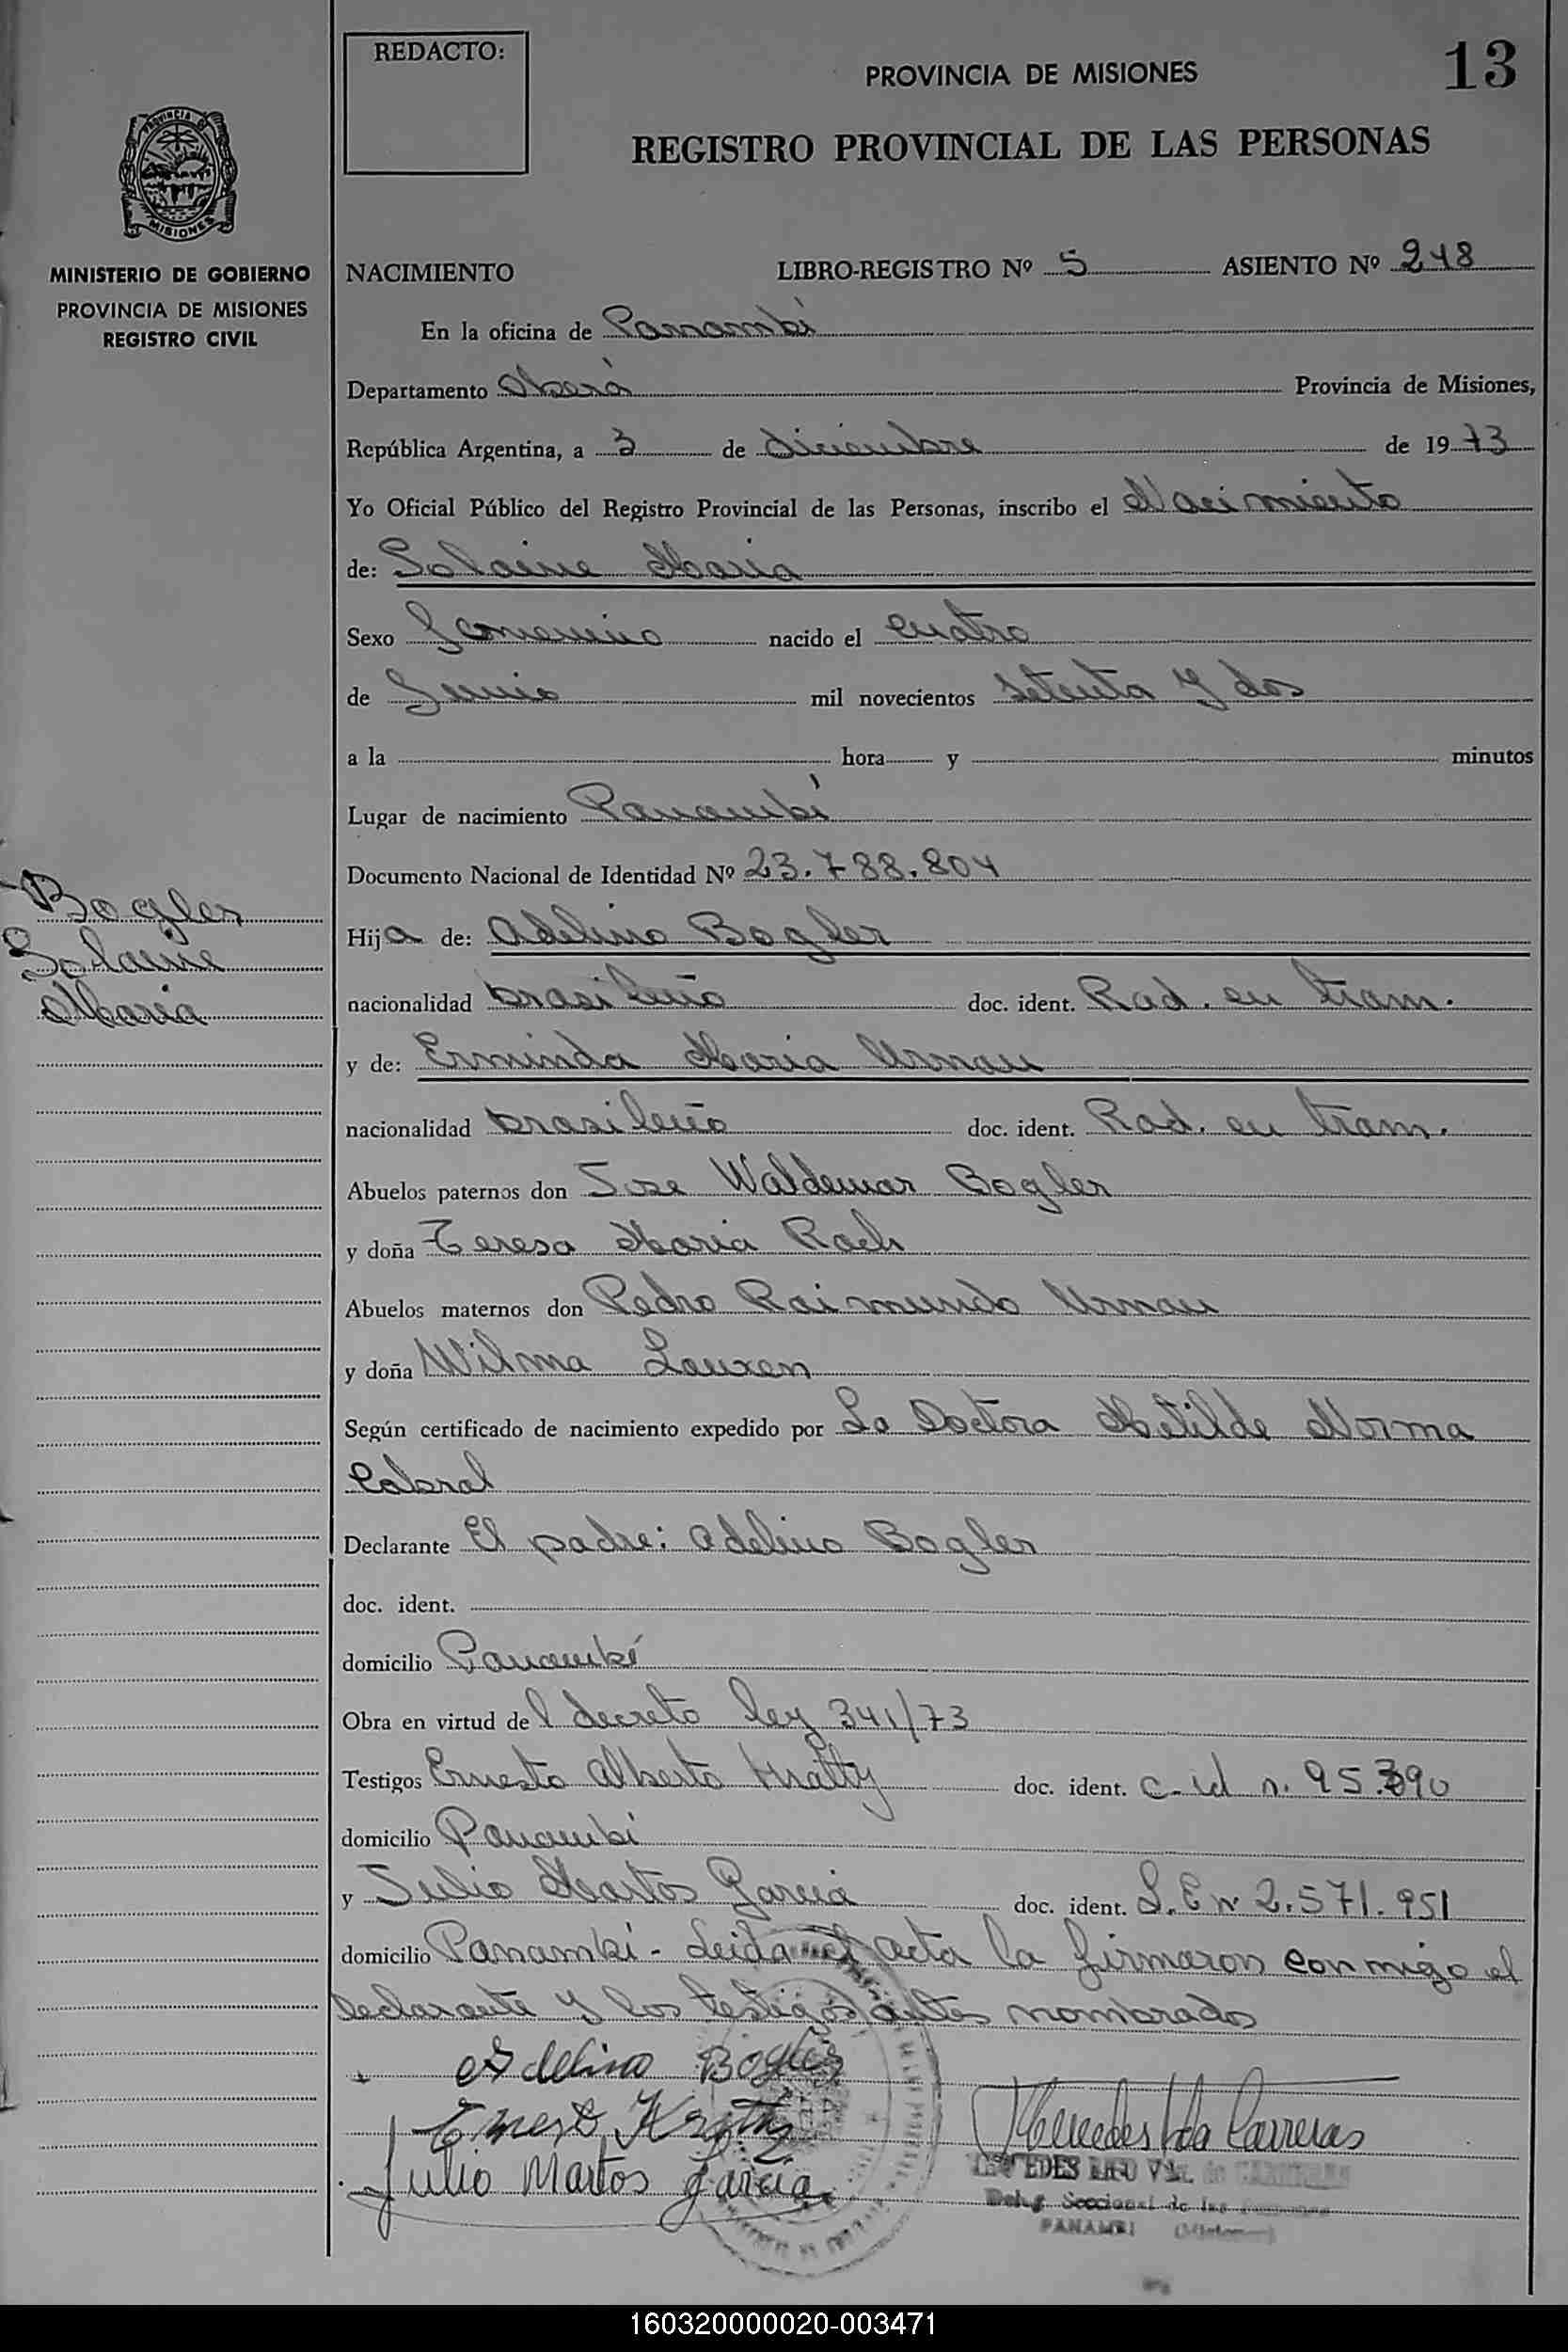 REDACTO:
PROVINCIA DE MISIONES
13
REGISTRO PROVINCIAL DE LAS PERSONAS
PROVINCIA DE
MISIONES
MINISTERIO DE GOBIERNO
PROVINCIA DE MISIONES
REGISTRO CIVIL
NACIMIENTO LIBRO-REGISTRO Nº 5 ASIENTO Nº 248
En la oficina de Panambi
Departamento Oberà Provincia de Misiones,
República Argentina, a 3 de diciembre de 1973
Yo Oficial Público del Registro Provincial de las Personas, inscribo el Nacimiento
de: Solaine Maria
Sexo Femenino nacido el cuatro
de Junio mil novecientos setenta y dos
a la hora y minutos
Lugar de nacimiento Panambi
Documento Nacional de Identidad Nº 23.788.804
Bogler
Solaine
Maria
Hija de: Adelino Bogler
nacionalidad brasileño doc. ident. Rad. en tram.
y de: Erminda Maria Urnau
nacionalidad brasileño doc. ident. Rad. en tram.
Abuelos paternos don Jose Waldemar Bogler
y doña Teresa Maria Rach
Abuelos maternos don Pedro Raimundo Urnau
y doña Wilma Lauxen
Según certificado de nacimiento expedido por La Doctora Matilde Norma
Cabral
Declarante El padre: Adelino Bogler
doc. ident.
domicilio Panambí
Obra en virtud del decreto ley 341/73
Testigos Ernesto Alberto doc. ident. c. id n. 95.390
domicilio Panambi
y Julio Martos Garcia doc. ident. L.E nº 2.571.951
domicilio Panambi - Leida el acta la firmaron conmigo el
declarante y los testigos antes nombrados
Adelino Bogler
Ernesto
Julio Martos Garcia
Mercedes Carreras
PANAMBI
160320000020-003471